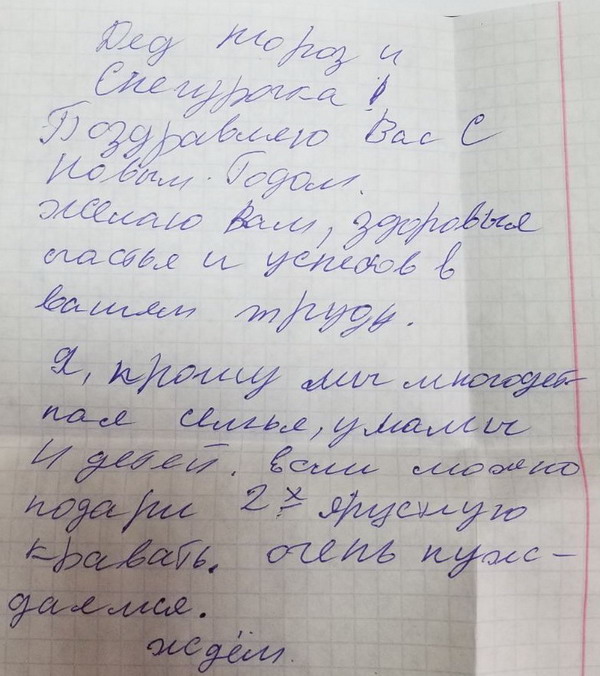 Дед Мороз и
Снегурочка!
Поздравляю Вас С
Новым Годом.
желаю Вам, здоровья
счастья и успехов в
вашем труду.
Я, крошу мы многодет-
ная семья, у мамы
4 детей. если можно
подари 2х ярусную
кравать. очень нуж-
даемся.
ждём.